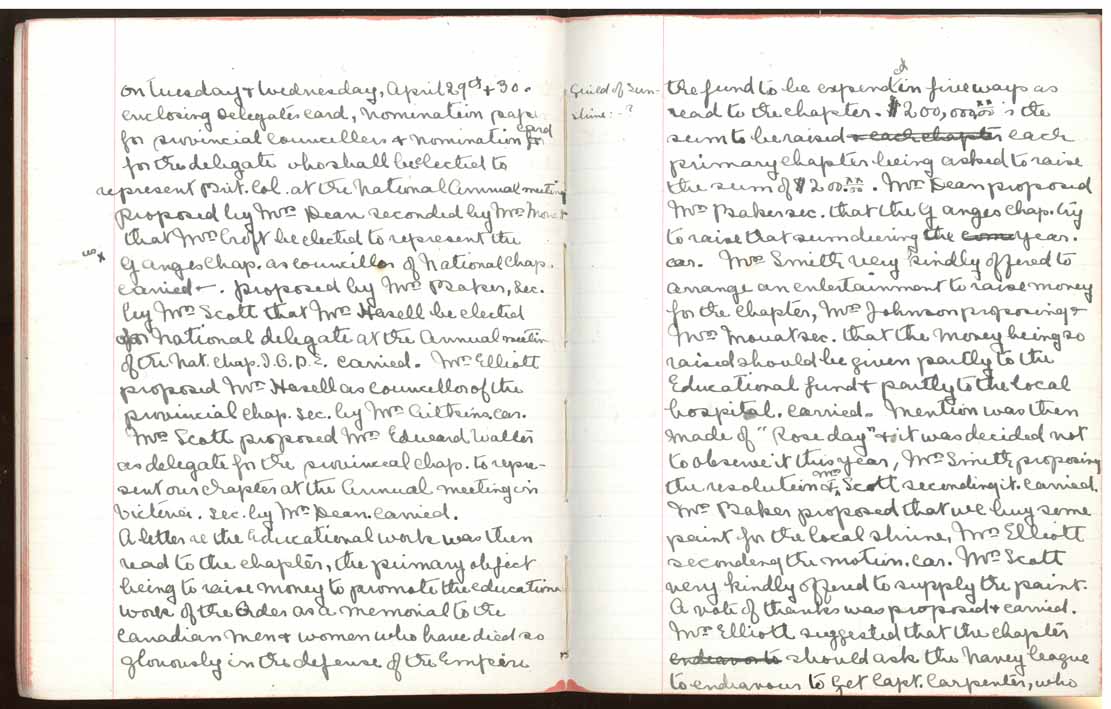 on Tuesday & Wednesday, April 29th & 30.
enclosing delegates card, nomination paper
for provincial councillers & nomination card for
for the delegate who shall be elected to
represent Brit. Col. at the National Annual meeting
proposed by Mrs Dean seconded by Mrs Mouat
that Mrs Croft be elected to represent the
Ganges Chap. as councillor of National Chap.
carried. proposed by Mrs Baker, sec.
by Mrs Scott that Mrs Hasell be elected
National delegate at the Annual meetin
of the Nat. Chap. I.O.D.E. carried. Mrs Elliott
proposed Mrs Hasell as councellor of the
provincial chap. sec. by Mrs Aitkens. car.
Mrs Scott proposed Mrs Edward Walter
as delegate for the provincial chap. to repre-
sent our chapter at the Annual meeting in
Victoria. sec. by Mrs Dean. carried.
A letter re the Educational work was then
read to the chapter, the primary object
being to raise money to promote the education
work of the Order as a memorial to the
Canadian men & women who have died so
gloriously in the defense of the Empire
Guild of Sun-
shine:-?
the fund to be expend ed in five ways as
read to the chapter. $200,000.xx/00 is the
sum to be raised & each chapter each
primary chapter being asked to raise
the sum of $200.xx/00. Mrs Dean proposed
Mrs Baker sec. that the Ganges Chap. try
to raise that sum during the come year.
car. Mrs Smith very kindly offered to
arrange an entertainment to raise money
for the chapter, Mrs Johnson proposing &
Mrs Mouat sec. that the money being so
raised should be given partly to the
Educational fund & partly to the local
hospital. carried. Mention was then
made of "Rose day" & it was decided not
to observe it this year, Mrs Smith proposing
the resolution & Mrs Scott seconding it. carried.
Mrs Baker proposed that we buy some
paint for the local shrine, Mrs Elliott
seconding the motion. car. Mrs Scott
very kindly offered to supply the paint.
A vote of thanks was proposed & carried.
Mrs Elliott suggested that the chapter
endeavor to should ask the navey league
to endeavour to get Capt. Carpenter, who